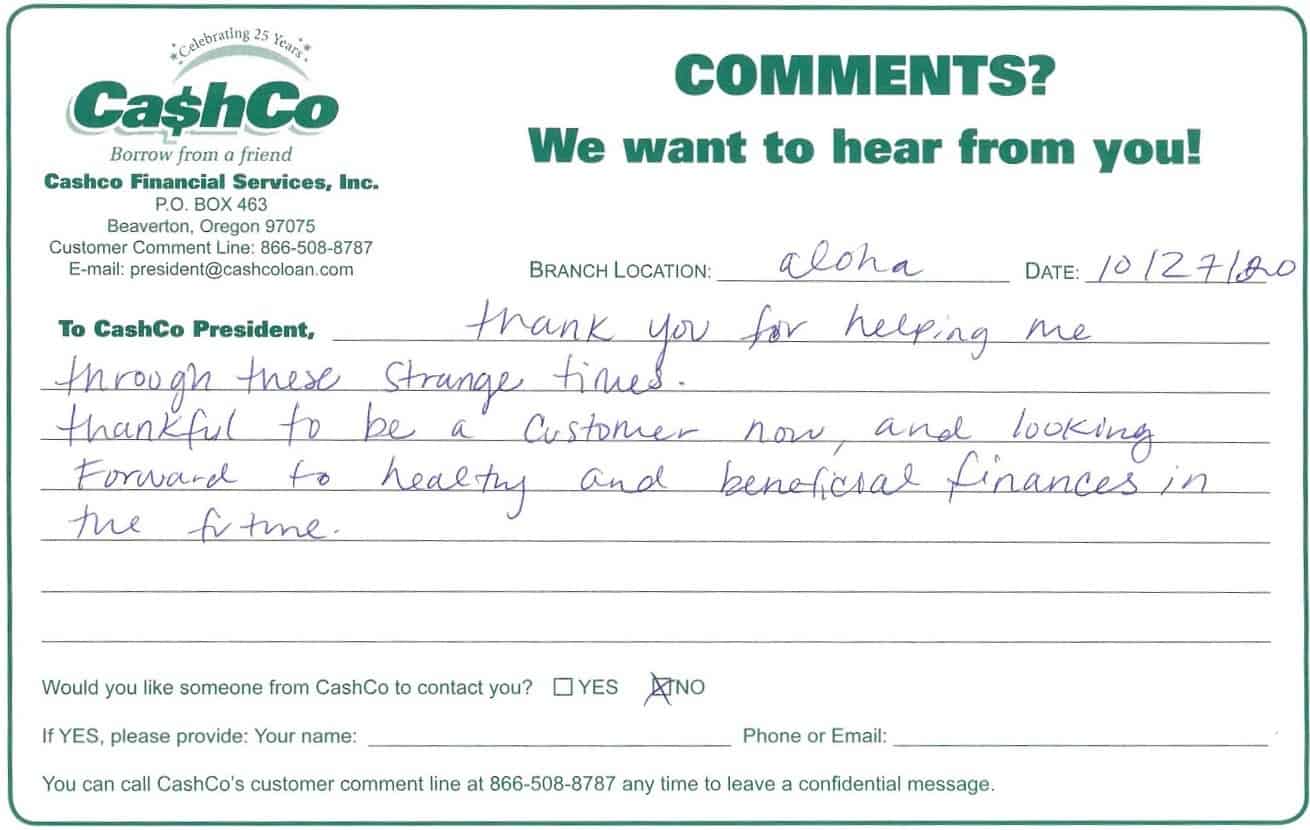 Celebrating 25 Years
Ca$hCo
Borrow from a friend
Cashco Financial Services, Inc.
P.O. BOX 463
Beaverton, Oregon 97075
Customer Comment Line: 866-508-8787
E-mail: president@cashcoloan.com
COMMENTS?
We want to hear from you!
BRANCH LOCATION: aloha DATE: 10/27/20
To CashCo President, thank you for helping me
through these strange times.
thankful to be a customer now, and looking
Forward to healthy and beneficial finances in
the future.
Would you like someone from CashCo to contact you? YES NO
If YES, please provide: Your name: Phone or Email:
You can call CashCo's customer comment line at 866-508-8787 any time to leave a confidential message.